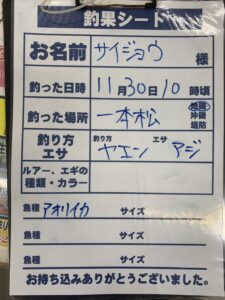 釣果シート
お名前 サイジョウ 様
釣った日時 11月30日10時頃
釣った場所 一本松 地磯 沖磯 堤防
釣り方 エサ 釣り方 ヤエン エサ アジ
ルアー、エギの種類・カラー
魚種 アオリイカ サイズ
魚種 サイズ
魚種 サイズ
お持ち込みありがとうございました。